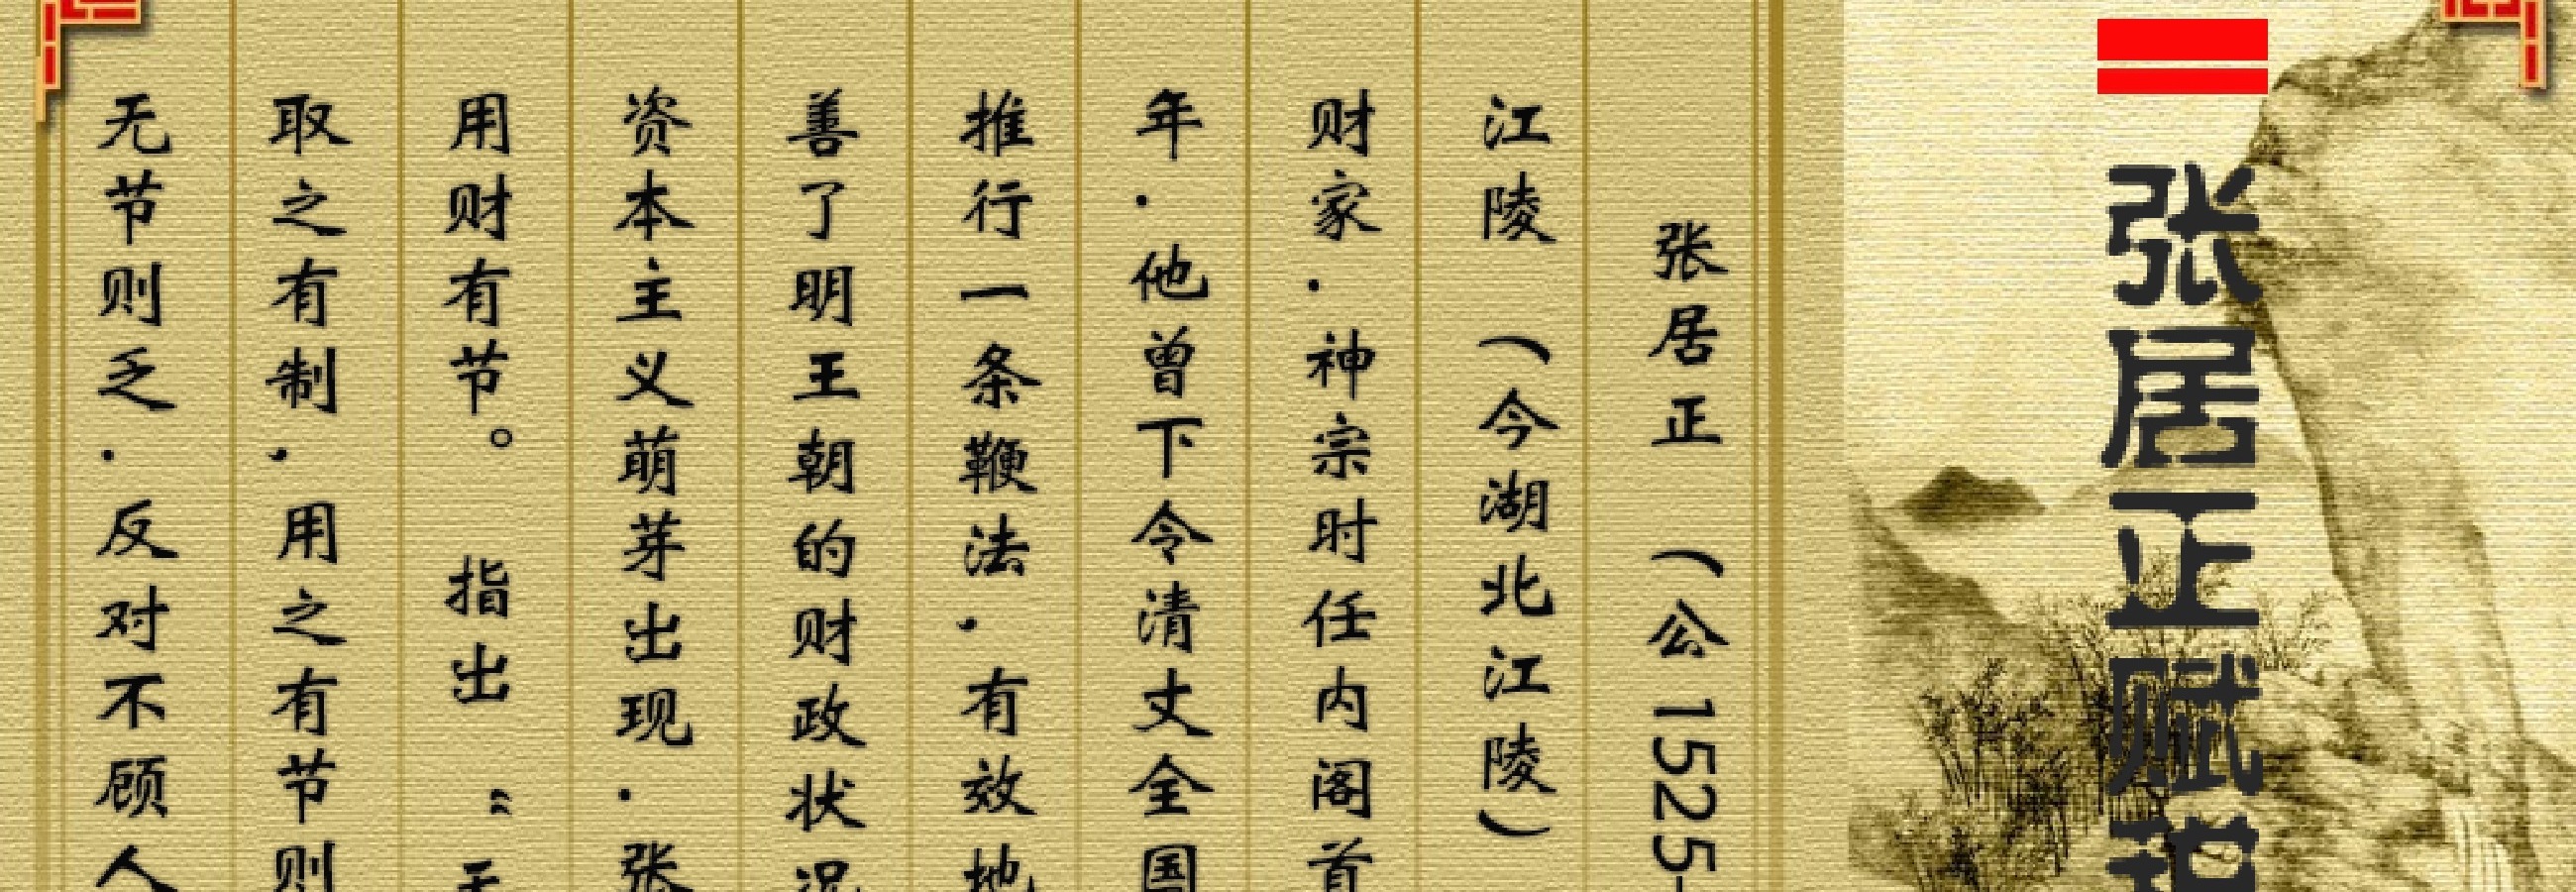 张居正赋
张居正（公1525-
江陵（今湖北江陵）
财家．神宗时任内阁首
年．他曾下令清丈全国
推行一条鞭法．有效地
善了明王朝的财政状况
资本主义萌芽出现．张
用财有节。指出“
取之有制．用之有节则
无节则乏．反对不顾人